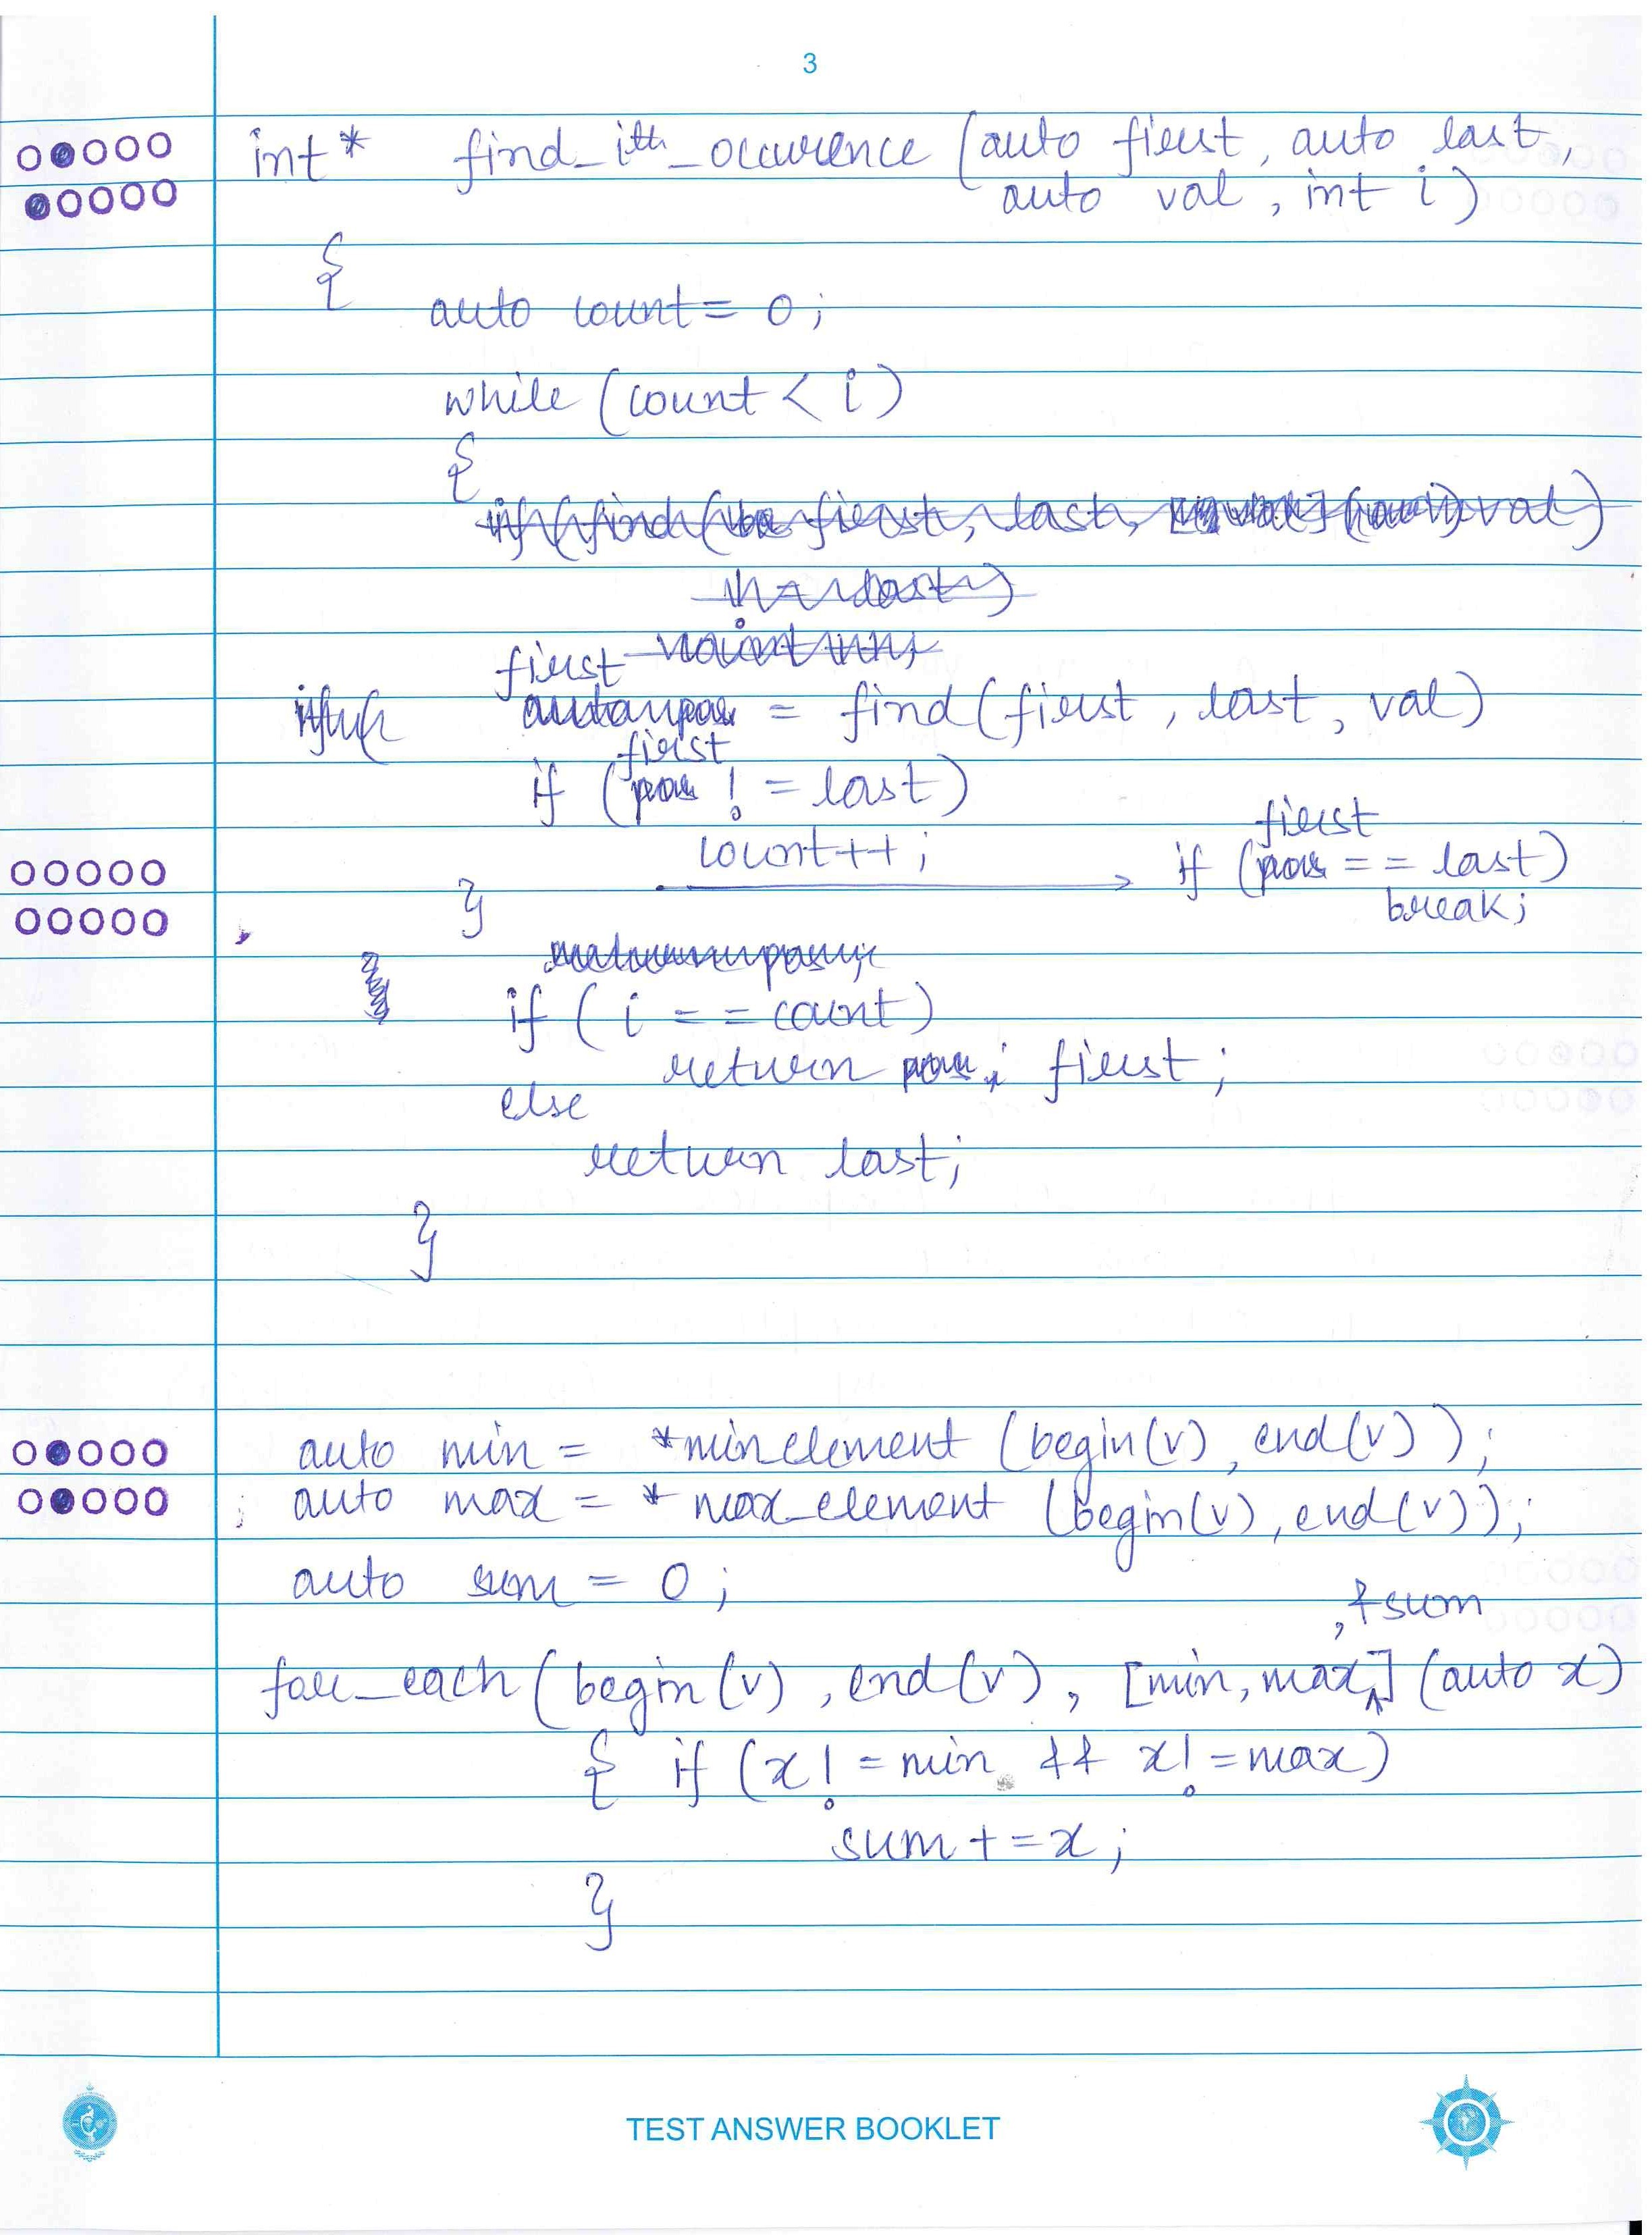 3
int* find_ith_occurence (auto first, auto last,
auto val, int i)
{
auto count = 0;
while (count < i)
{
first
= find(first, last, val)
first
if ( != last)
count++;
first
if ( == last)
break;
}
if (i == count)
return first;
else
return last;
}
auto min = *minelement (begin(v), end(v));
auto max = *max_element (begin(v), end(v));
auto sum = 0;
,&sum
for_each (begin(v), end(v), [min, max] (auto x)
{ if (x != min && x != max)
sum += x;
}
TEST ANSWER BOOKLET